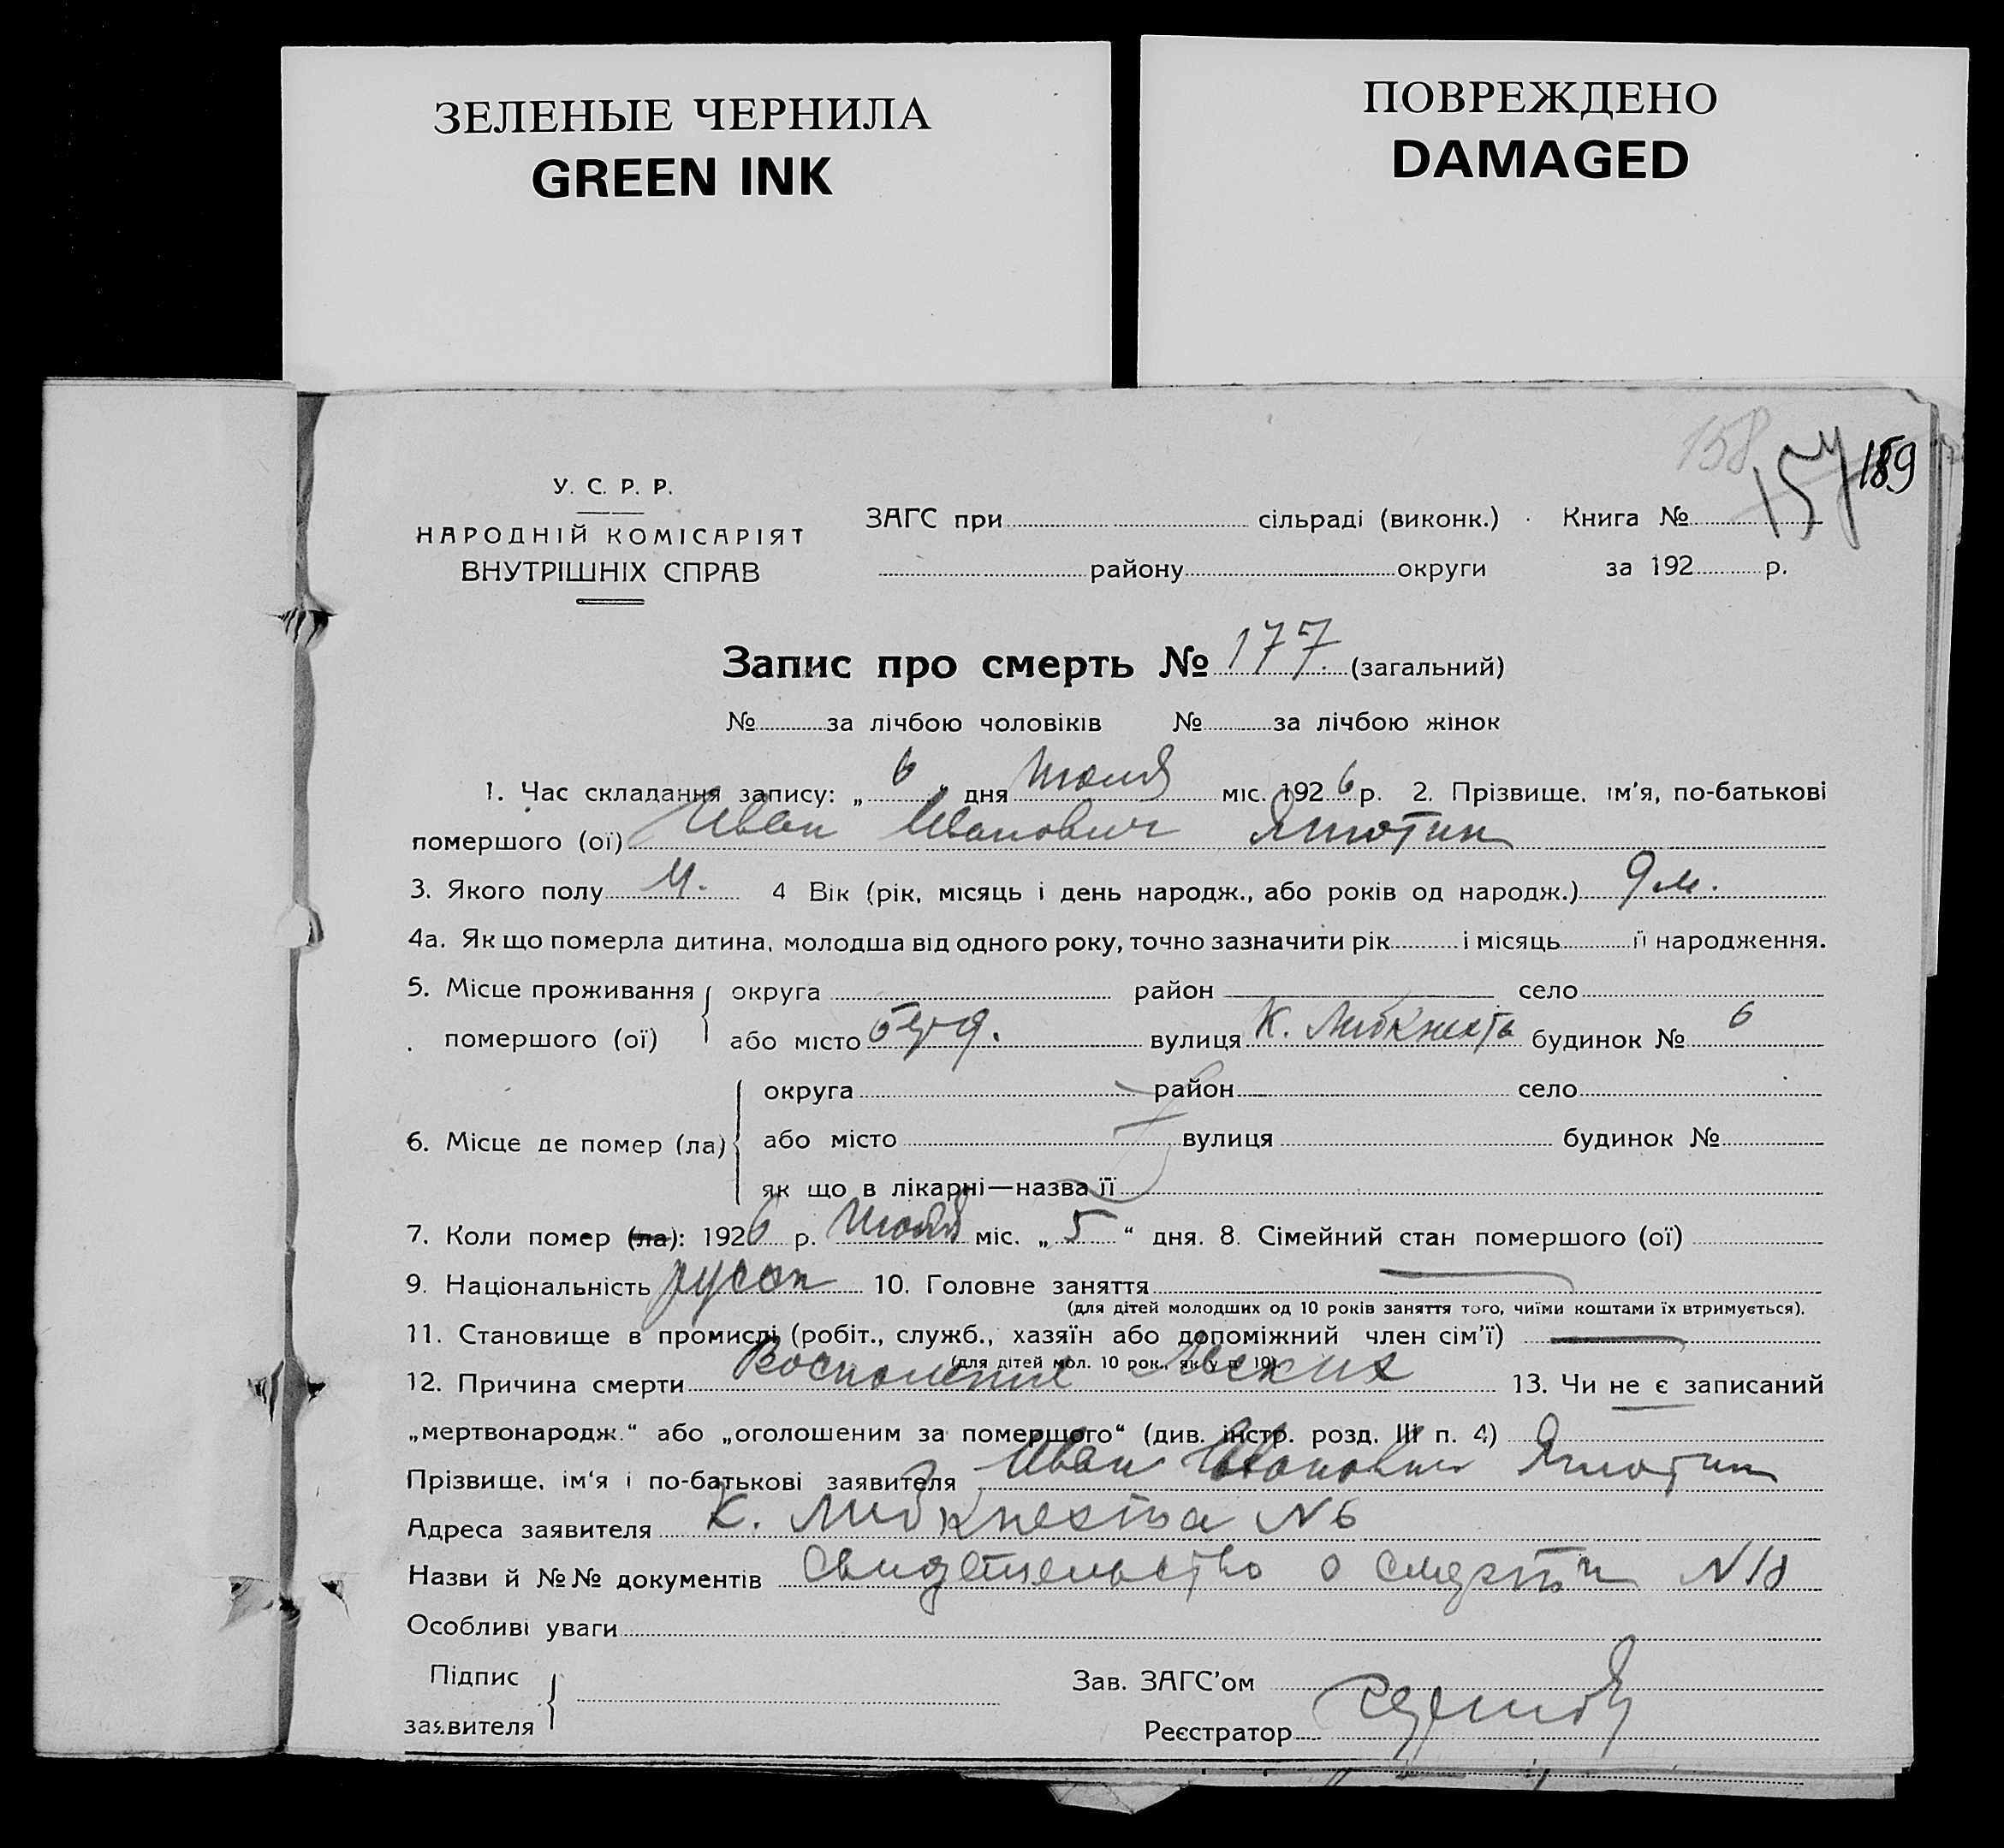 ЗЕЛЕНЫЕ ЧЕРНИЛА
GREEN INK
ПОВРЕЖДЕНО
DAMAGED
158 157 189
У. С. Р. Р.
НАРОДНІЙ КОМІСАРІЯТ
ВНУТРІШНІХ СПРАВ
ЗАГС при сільраді (виконк.) Книга №
району округи за 192 р.
Запис про смерть № 177. (загальний)
№ за лічбою чоловіків № за лічбою жінок
1. Час складання запису: „ 6 “ дня Июля міс. 1926 р. 2. Прізвище, ім'я, по-батькові
помершого (ої) Иван Иванович
3. Якого полу М. 4 Вік (рік, місяць і день народж., або років од народж.) 9 м.
4а. Як що померла дитина, молодша від одного року, точно зазначити рік і місяць її народження.
5. Місце проживання округа район село
помершого (ої) або місто вулиця К. Либкнехта будинок № 6
округа район село
6. Місце де помер (ла) або місто вулиця будинок №
як що в лікарні—назва її
7. Коли помер (ла): 1926 р. Июля міс. „ 5 “ дня. 8. Сімейний стан помершого (ої)
9. Національність русск 10. Головне заняття
(для дітей молодших од 10 років заняття того, чиїми коштами їх втримується).
11. Становище в промислі (робіт., служб., хазяїн або допоміжний член сім'ї)
(для дітей мол. 10 рок., як у п. 10).
12. Причина смерти Воспаление легких 13. Чи не є записаний
„мертвонародж.“ або „оголошеним за померщого“ (див. інстр. розд. III п. 4)
Прізвище, ім'я і по-батькові заявителя Иван Иванович
Адреса заявителя К. Либкнехта № 6
Назви й №№ документів Свидетельство о смерти №
Особливі уваги
Підпис
заявителя
Зав. ЗАГС'ом
Реєстратор